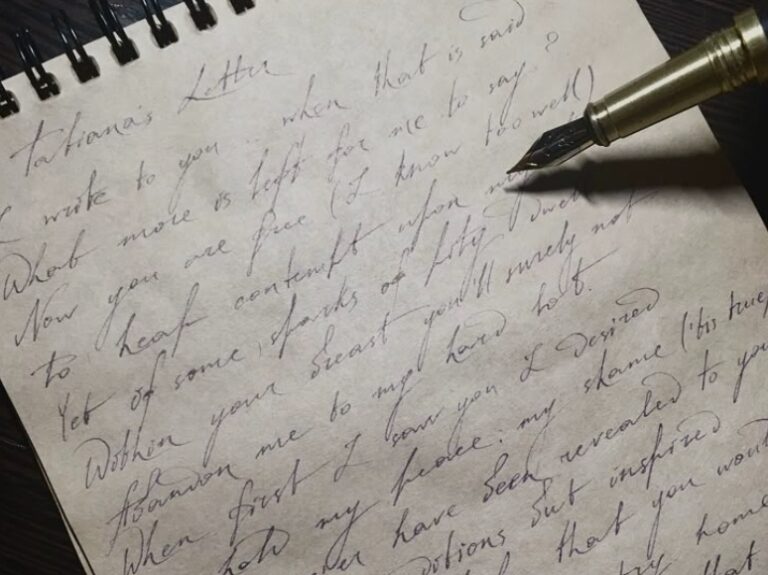 Tatiana's Letter
I write to you .. when that is said
What more is left for me to say?
Now you are free (I know too well)
to heap contempt upon
Yet if some sparks of pity dwell
Within your breast you'll surely not
Abandon me to my hard lot.
When first I saw you I desired
hold my peace; my shame ('tis true,
have been revealed to you
but inspired
that you
home
that